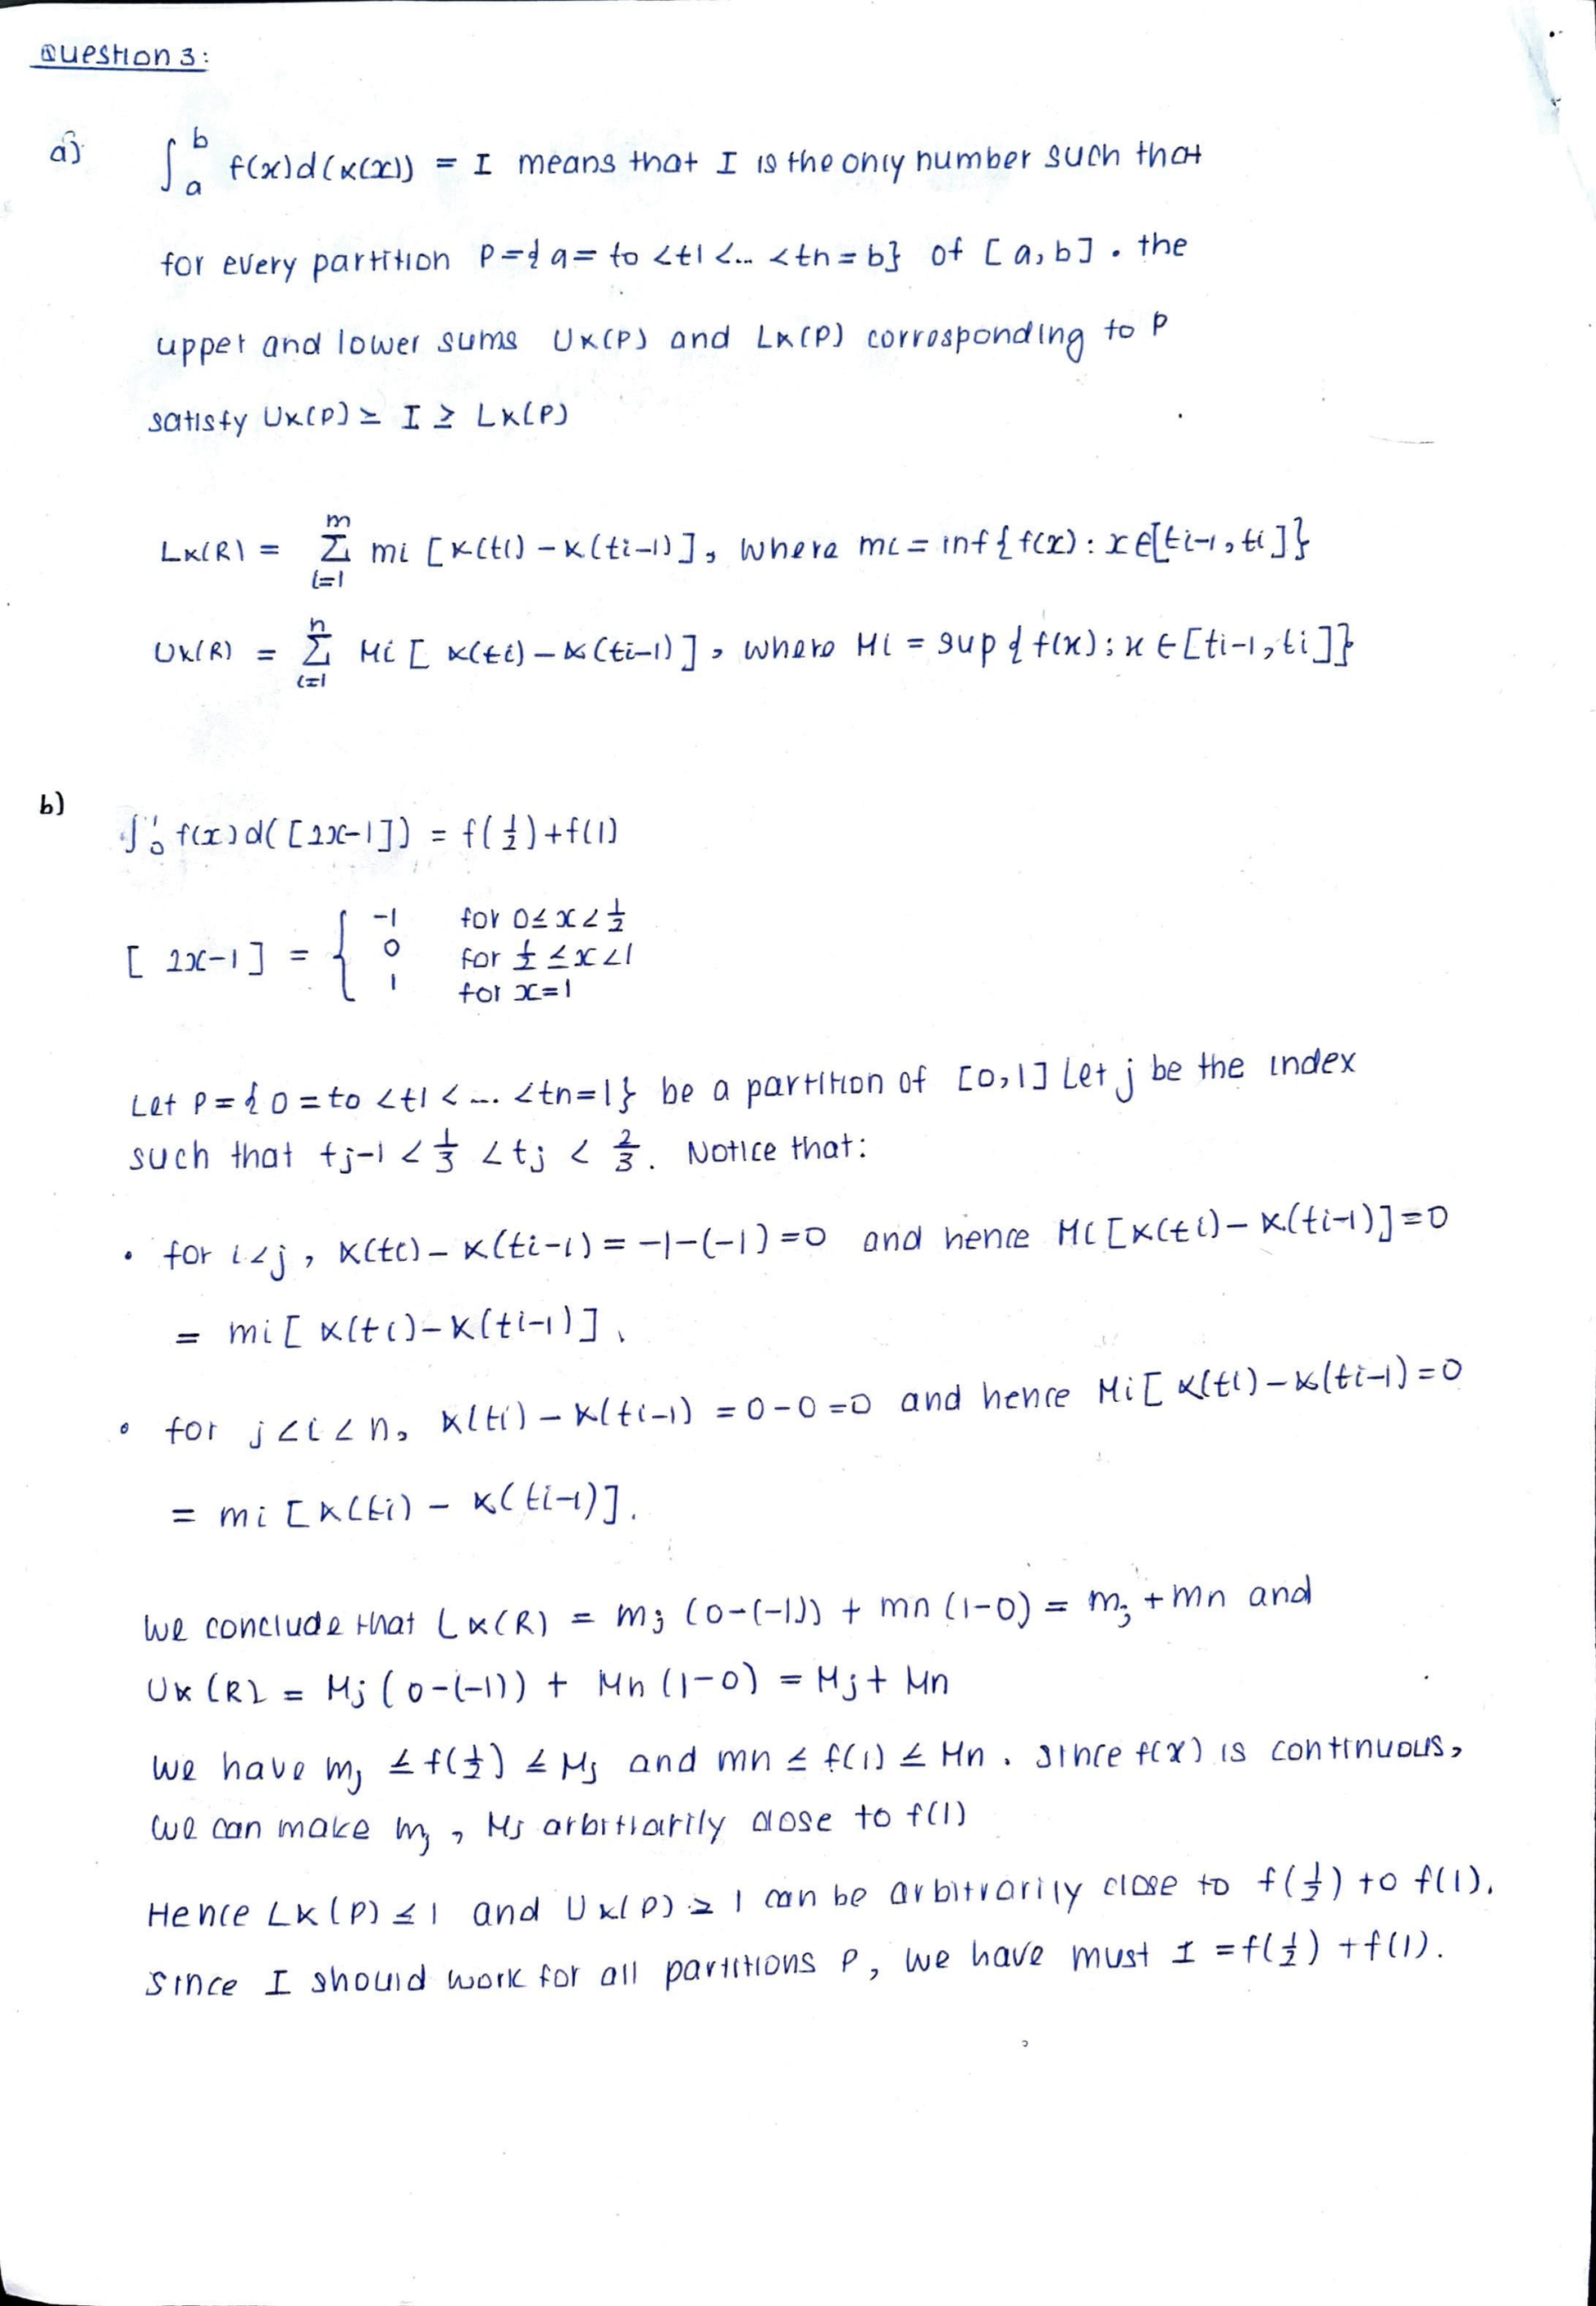 Question 3:
a) ∫_a^b f(x)d(α(x)) = I means that I is the only number such that
for every partition P={a=to <t1 <... <tn=b} of [a,b]. the
upper and lower sums Uα(P) and Lα(P) corresponding to P
satisfy Uα(P) ≥ I ≥ Lα(P)
Lα(R) = m Σ i=1 mi [α(ti) – α(ti-1)], where mi = inf{f(x): x∈[ti-1, ti]}
Uα(R) = n Σ i=1 Mi [α(ti) – α(ti-1)], where Mi = sup{f(x): x∈[ti-1, ti]}
b)
∫_0^1 f(x)d([2x-1]) = f(1/2)+f(1)
[2x-1] = { -1 for 0≤x<1/2
0 for 1/2 ≤x<1
1 for x=1
Let P={0=to <t1 <... <tn=1} be a partition of [0,1] Let j be the index
such that tj-1 < 1/3 <tj < 2/3. Notice that:
• for i<j, α(ti) – α(ti-1) = -1-(-1) =0 and hence Mi[α(ti) – α(ti-1)]=0
= mi[α(ti)-α(ti-1)].
• for j<i<n, α(ti) – α(ti-1) =0-0=0 and hence Mi[α(ti)-α(ti-1)=0
= mi [α(ti) – α(ti-1)].
We conclude that Lα(R) = mj (0-(-1)) + mn (1-0) = mj +mn and
Uα(R) = Mj (0-(-1)) + Mn (1-0) = Mj+ Mn
We have mj ≤ f(1/2) ≤ Mj and mn ≤ f(1) ≤ Mn. Since f(x) is continuous,
we can make mj, Mj arbitrarily close to f(1)
Hence Lα(P) ≤ 1 and Uα(P) ≥ 1 can be arbitrarily close to f(1/2) to f(1).
Since I should work for all partitions P, we have must I =f(1/2) +f(1).